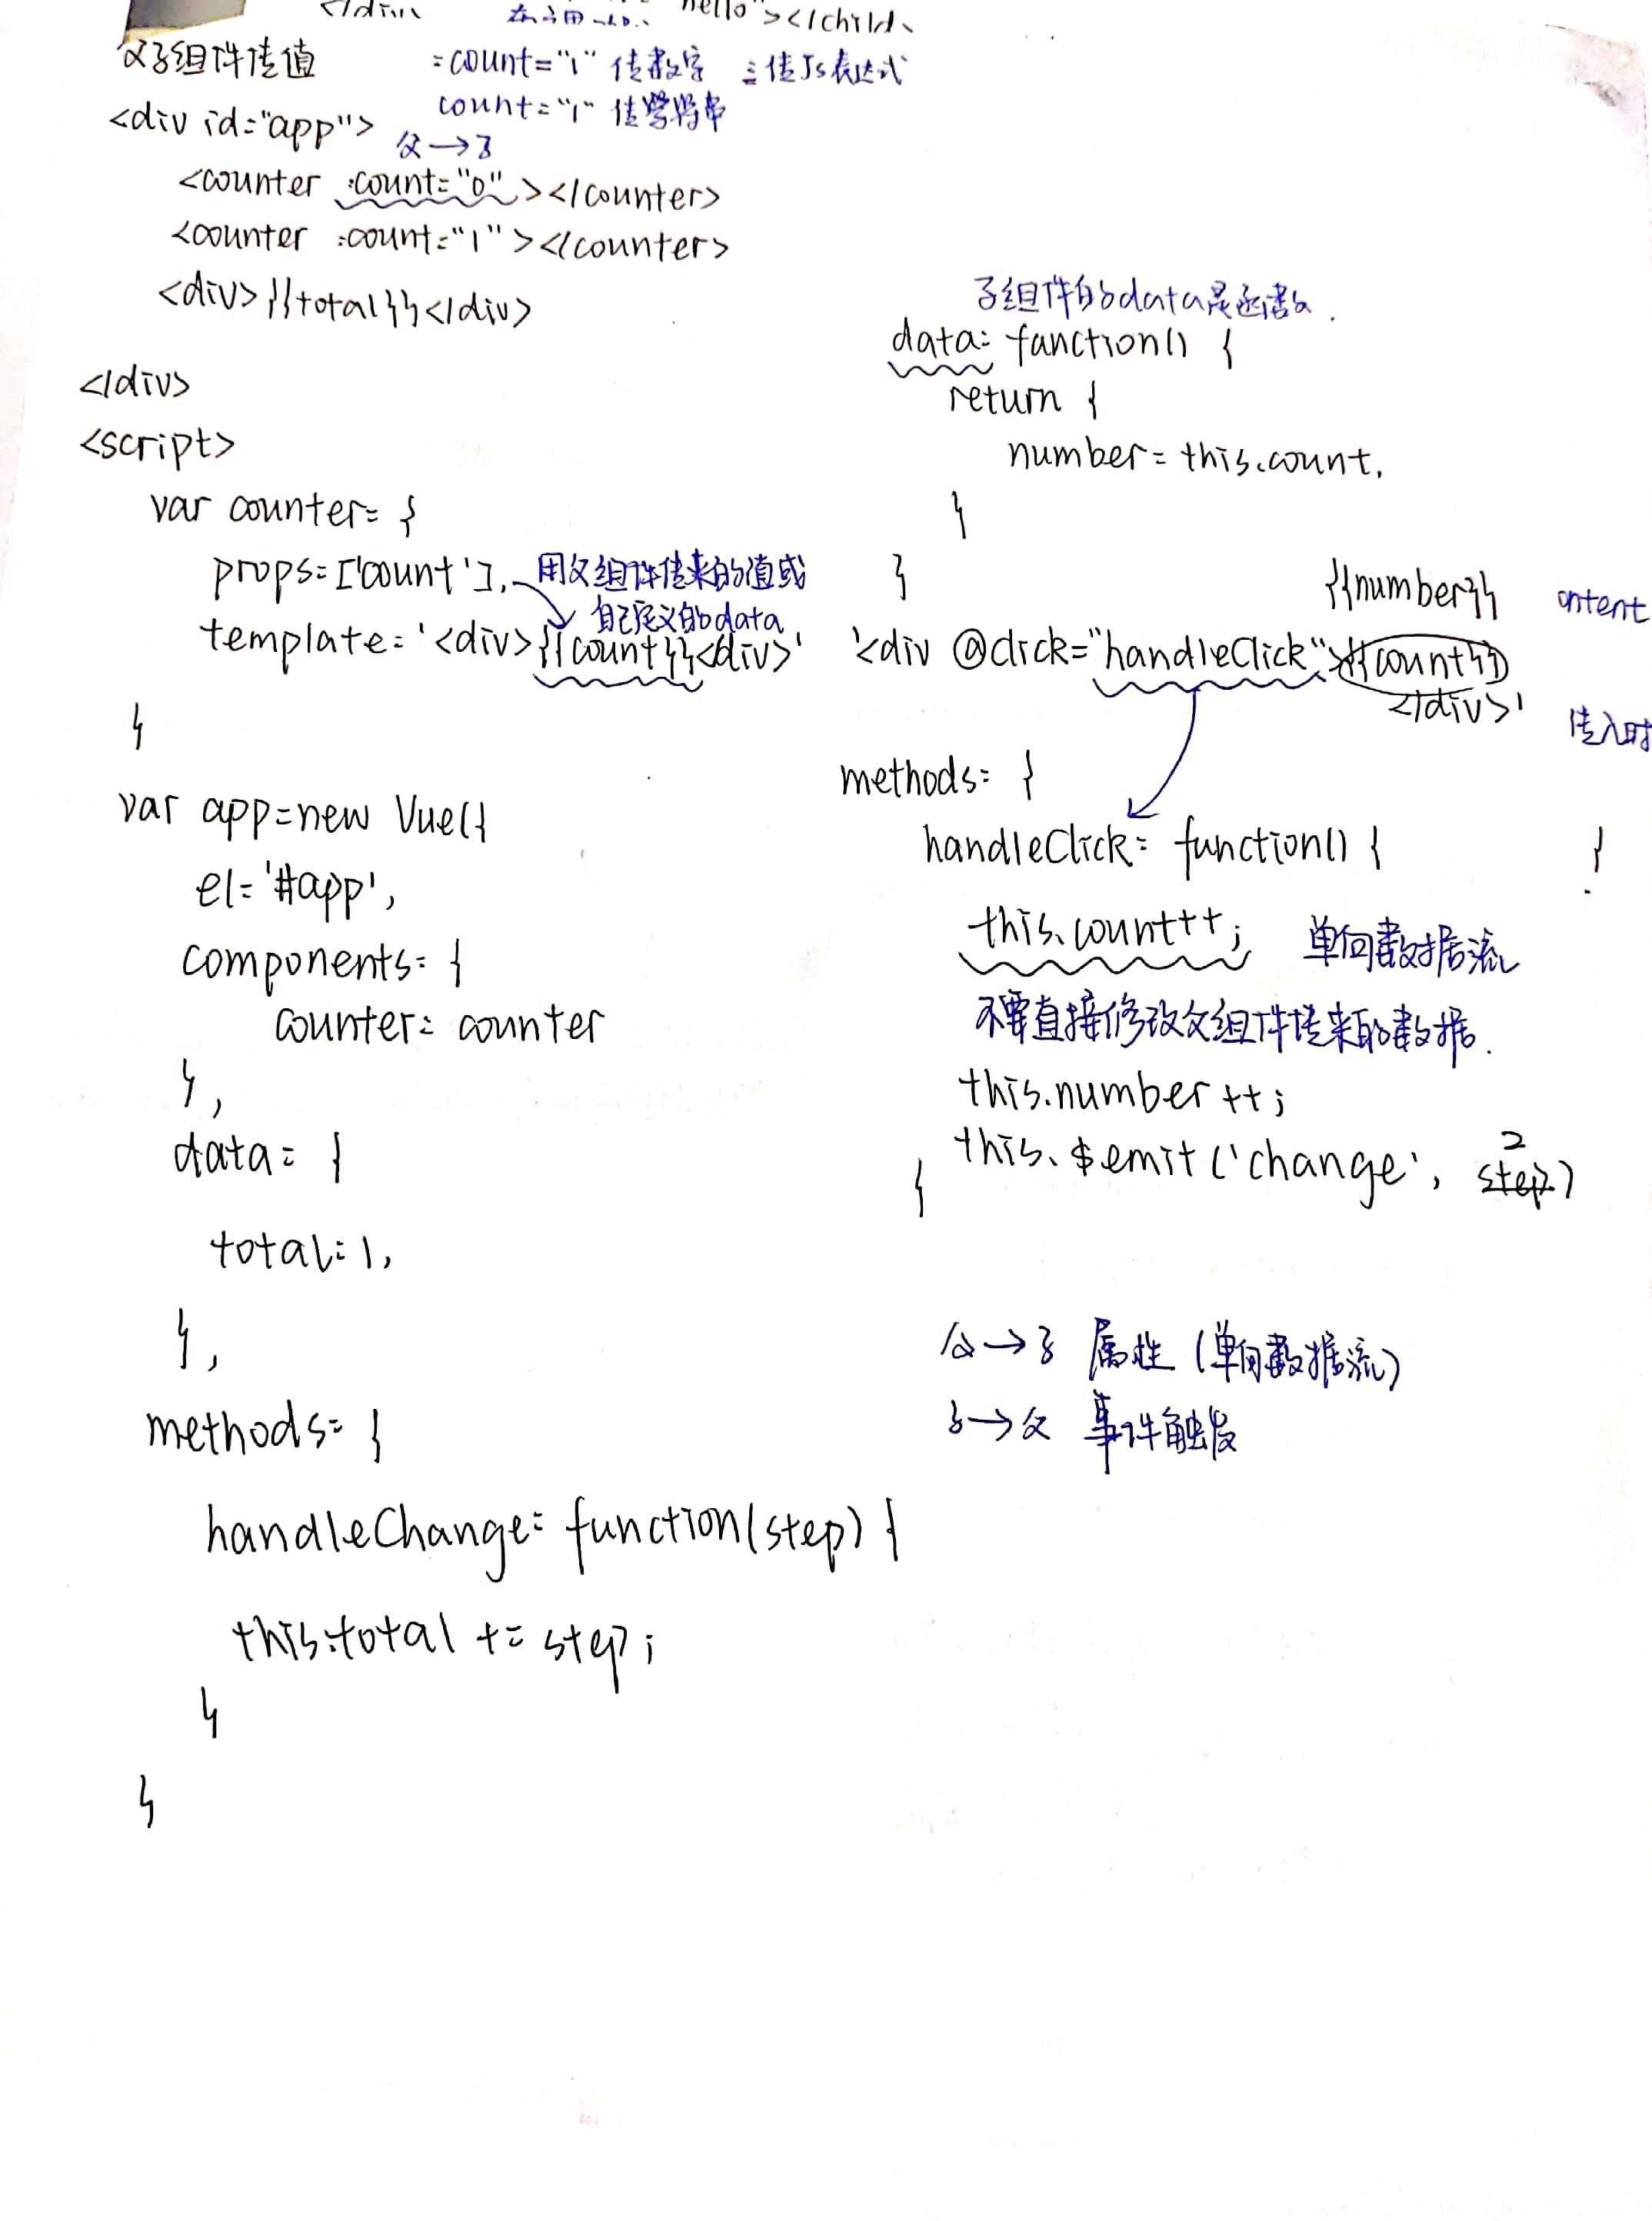 hello"></child>
父子组件传值
:count="1" 传数字 :传Js表达式
count="1" 传字符串
<div id="app">
父→子
<counter :count="0"></counter>
<counter :count="1"></counter>
<div>{{total}}</div>
</div>
<script>
var counter= {
props:['count'],
用父组件传来的值或
自己定义的data
template: '<div>{{count}}<div>'
}
var app=new Vue({
el: '#app',
components: {
counter: counter
},
data: {
total:1,
},
methods: {
handleChange: function(step) {
this.total += step;
}
}
子组件的data是函数.
data: function() {
return {
number: this.count,
}
}
{{number}}
'<div @click="handleClick">{{count}}
</div>'
methods: {
handleClick: function() {
this.count++; 单向数据流
不要直接修改父组件传来的数据.
this.number++;
2
this.$emit('change', step)
}
父→子 属性(单向数据流)
子→父 事件触发
ontent
传入时
}